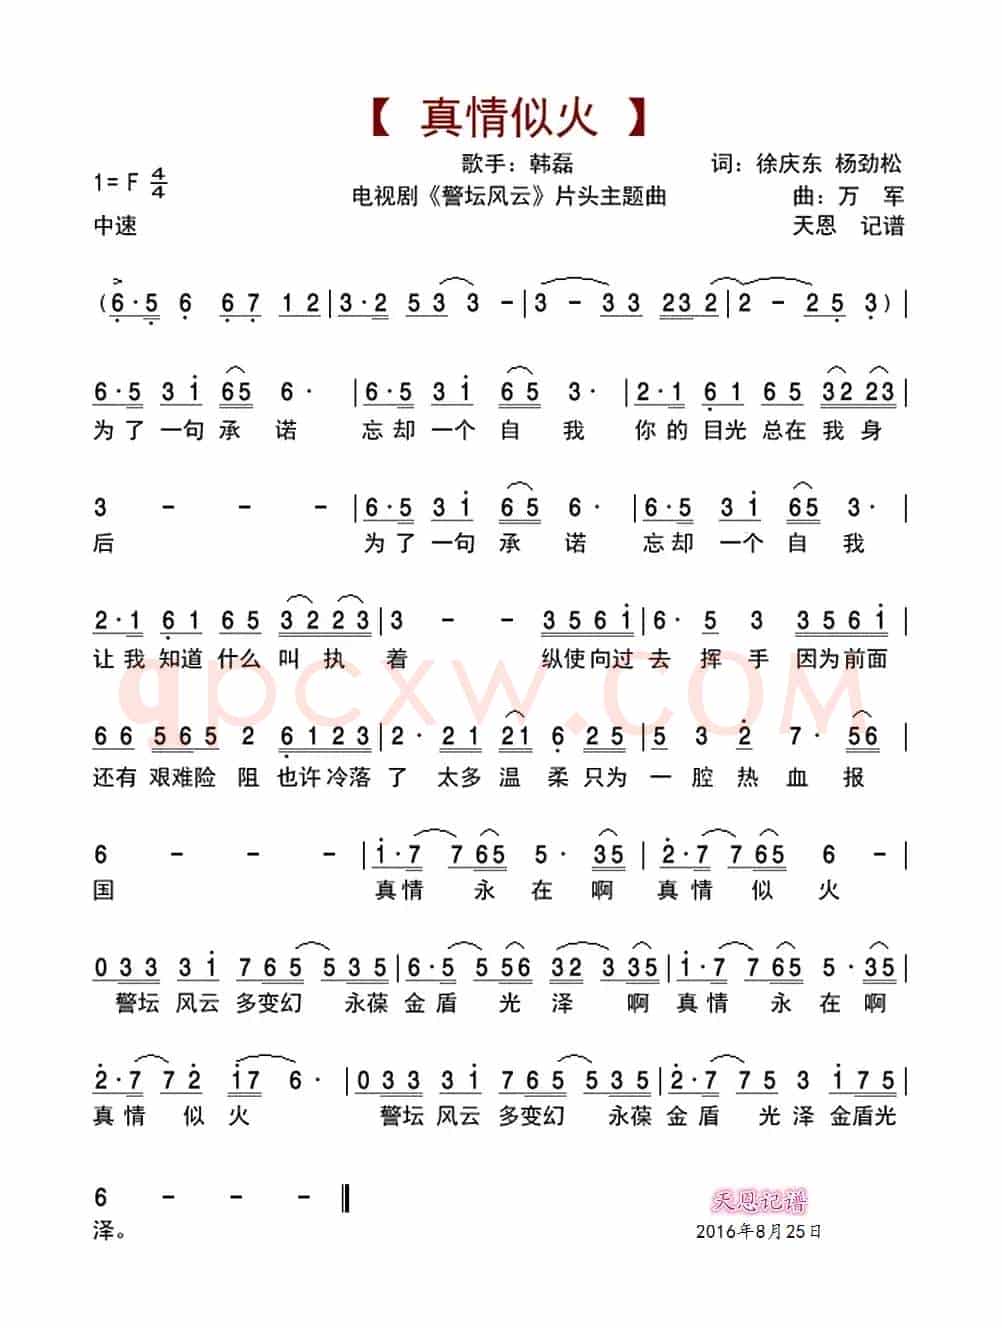 【 真情似火 】
歌手：韩磊 词：徐庆东 杨劲松
1= F 4/4 电视剧《警坛风云》片头主题曲 曲：万 军
中速 天恩 记谱
(6·5 6 67 12|3·2 53 3 -|3 - 33 232|2 - 25 3)|
6·5 3i 65 6·|6·5 3i 65 3·|2·1 61 65 3223|
为了一句承诺 忘却一个自我 你的目光总在我身
3 - - -|6·5 3i 65 6·|6·5 3i 65 3·|
后 为了一句承诺 忘却一个自我
2·1 61 65 3223|3 - - 356i|6· 5 3 356i|
让我知道什么叫执着 纵使向过去挥手因为前面
qpcxw.COM
66 565 2 6123|2· 21 21 6 25|5 3 2 7· 56|
还有艰难险阻也许冷落了 太多温柔只为一腔热血报
6 - - -|i·7 765 5· 35|2·7 765 6 -|
国 真情永在啊真情似火
033 3i 765 535|6·5 556 323 335|i·7 765 5· 35|
警坛风云多变幻 永葆金盾光泽啊真情永在啊
2·7 72 i7 6·|033 3i 765 535|2·7 75 3 i 755|
真情似火 警坛风云多变幻 永葆金盾光泽金盾光
6 - - -‖
泽。
天恩记谱
2016年8月25日